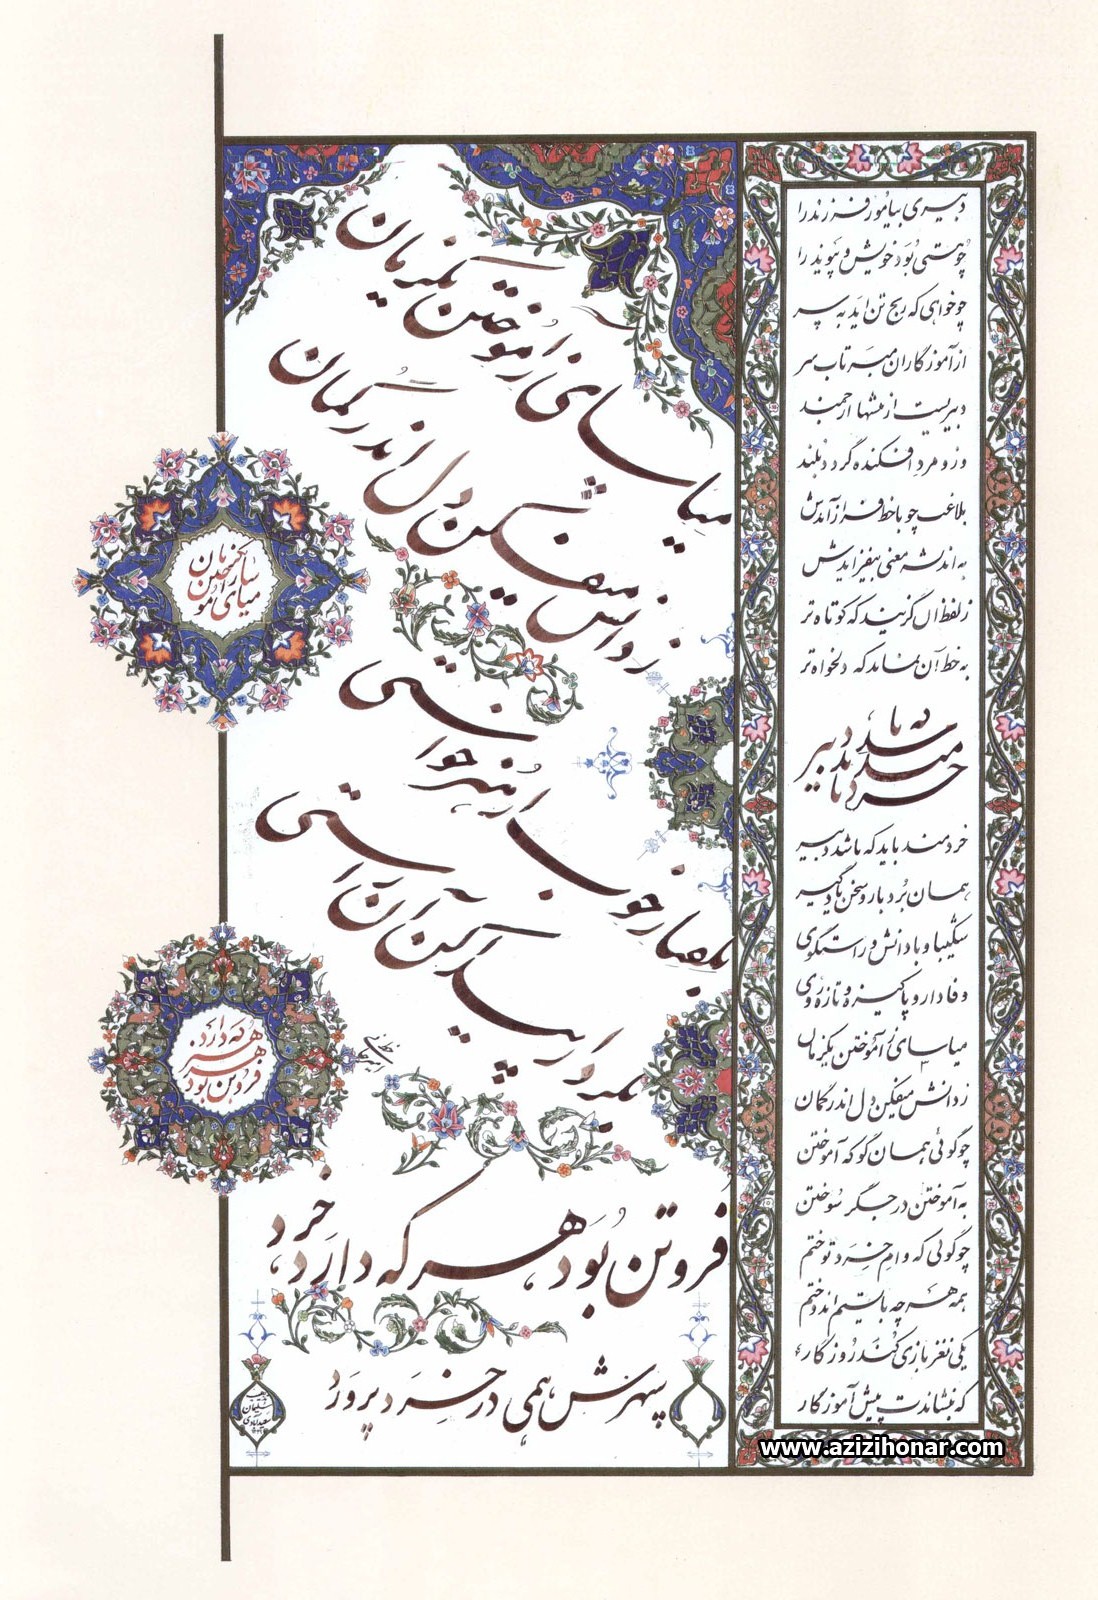 دبیری بیاموز فرزند را
چو هستی بود خویش و پیوند را
چو خواهی که رنج تن آید به بر
از آموزگاران مبرتاب سر
دبیریست از پیشها ارجمند
وزو مرد افکنده گردد بلند
بلاغت چو با خط فراز آیدش
به اندیشه معنی بیفزایدش
ز لفظ آن گزیند که کوتاه‌تر
به خط آن نماید که دلخواه‌تر
خردمند باید که باشد دبیر
خردمند باید که باشد دبیر
همان بردبار و سخن یادگیر
شکیبا و با دانش و راستگوی
وفادار و پاکیزه و تازه روی
میاسای ز آموختن یکزمان
ز دانش میفکن دل اندر گمان
چو گوئی همان گو که آموختی
به آموختن در جگر سوختی
چو گوئی که وام خرد توختم
همه هرچه بایستم اندوختم
یکی نغز بازی کند روزگار
که بنشاندت پیش آموزگار
میاسای ز آموختن یکزمان
ز دانش میفکن دل اندر گمان
میاسای ز آموختن یکزمان
بگفتار خوب ار هنر خواستی
بکردار پیدا کن آن راستی
فروتن بود هر که دارد خرد
فروتن بود هر که دارد خرد
سپهرش همی در خرد پرورد
www.azizihonar.com